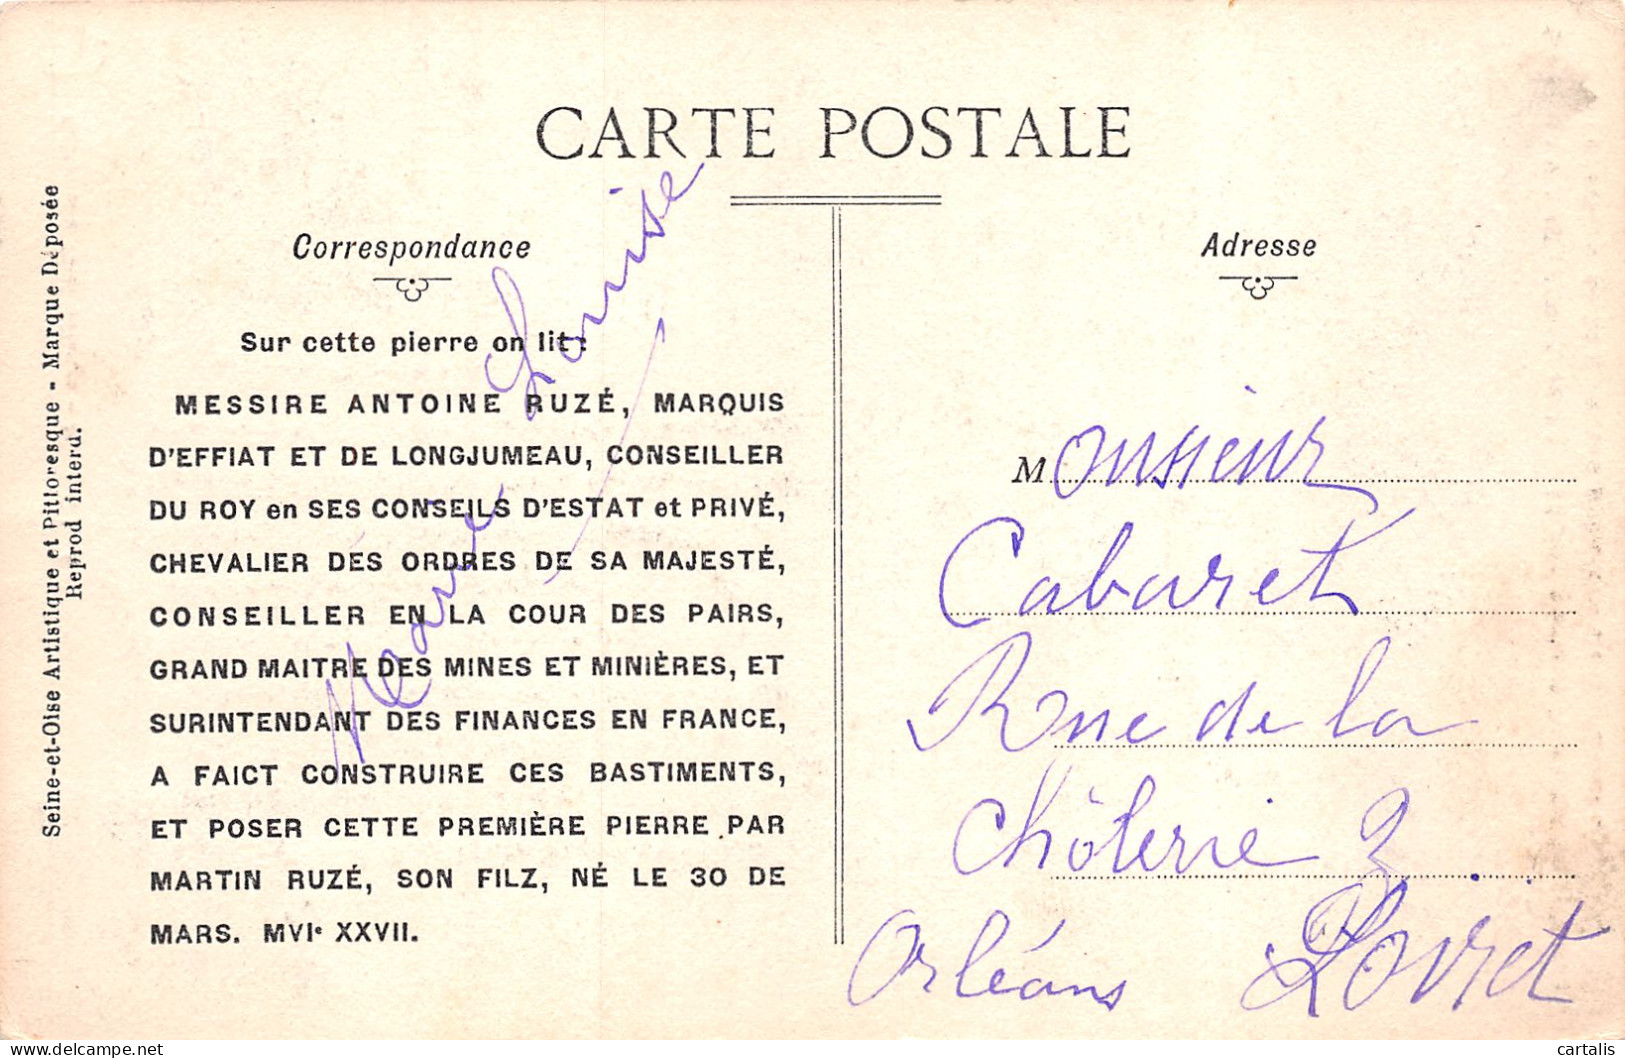 CARTE POSTALE
Seine-et-Oise Artistique et Pittoresque - Marque Déposée
Reprod interd.
Correspondance
Sur cette pierre on lit :
MESSIRE ANTOINE RUZÉ, MARQUIS
D'EFFIAT ET DE LONGJUMEAU, CONSEILLER
DU ROY en SES CONSEILS D'ESTAT et PRIVÉ,
CHEVALIER DES ORDRES DE SA MAJESTÉ,
CONSEILLER EN LA COUR DES PAIRS,
GRAND MAITRE DES MINES ET MINIÈRES, ET
SURINTENDANT DES FINANCES EN FRANCE,
A FAICT CONSTRUIRE CES BASTIMENTS,
ET POSER CETTE PREMIÈRE PIERRE PAR
MARTIN RUZÉ, SON FILZ, NÉ LE 30 DE
MARS. MVIc XXVII.
Marie Louise
Adresse
Monsieur
Cabaret
Rue de la
Chôlerie 2
Orléans Loiret
delcampe.net
cartalis